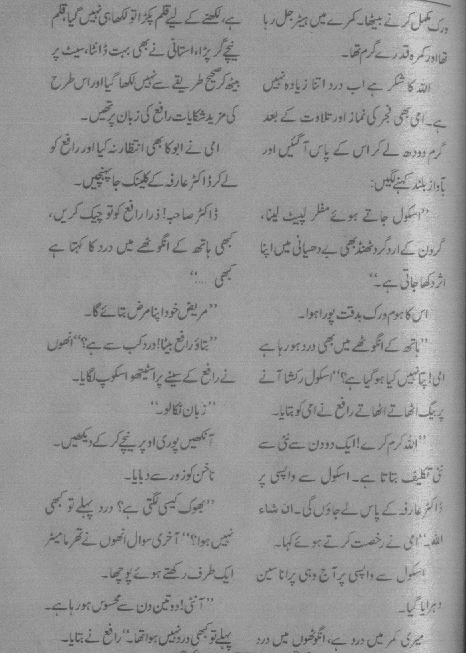 ورک مکمل کرنے بیٹھا۔ کمرے میں ہیٹر جل رہا
تھا اور کمرہ قدرے گرم تھا۔
اللہ کا شکر ہے اب درد اتنا زیادہ نہیں
ہے۔ امی بھی فجر کی نماز اور تلاوت کے بعد
گرم دودھ لے کر اس کے پاس آ گئیں اور
بآواز بلند کہنے لگیں:
”اسکول جاتے ہوئے مفلر لپیٹ لینا،
گردن کے اردگرد ٹھنڈ بھی بے دھیانی میں اپنا
اثر دکھا جاتی ہے۔“
اس کا ہوم ورک بدقت پورا ہوا۔
”ہاتھ کے انگوٹھے میں بھی درد ہو رہا ہے
امی! پتا نہیں کیا ہو گیا ہے؟“ اسکول رکشا آنے
پر بیگ اٹھاتے اٹھاتے رافع نے امی کو بتایا۔
”اللہ کرم کرے! ایک دو دن سے نئی سے
نئی تکلیف بتاتا ہے۔ اسکول سے واپسی پر
ڈاکٹر عارفہ کے پاس لے جاؤں گی۔ ان شاء
اللہ۔“ امی نے رخصت کرتے ہوئے کہا۔
اسکول سے واپسی پر آج وہی پرانا سین
دہرایا گیا۔
میری کمر میں درد ہے، انگوٹھوں میں درد
ہے، لکھنے کے لیے قلم پکڑا تو لکھا ہی نہیں گیا، قلم
نیچے گر پڑا، استانی نے بھی بہت ڈانٹا، سیٹ پر
بیٹھ کر صحیح طریقے سے نہیں لکھا گیا اور اس طرح
کی مزید شکایات رافع کی زبان پر تھیں۔
امی نے ابو کا بھی انتظار نہ کیا اور رافع کو
لے کر ڈاکٹر عارفہ کے کلینک جا پہنچیں۔
ڈاکٹر صاحبہ! ذرا رافع کو تو چیک کریں،
کبھی ہاتھ کے انگوٹھے میں درد کا کہتا ہے
کبھی ....“
”مریض خود اپنا مرض بتائے گا۔
”بتاؤ رافع بیٹا! درد کب سے ہے؟“ انھوں
نے رافع کے سینے پر اسٹیتھو اسکوپ لگایا۔
”زبان نکالو۔“
آنکھیں پوری اوپر نیچے کر کے دیکھیں۔
ناخن کو زور سے دبایا۔
”بھوک کیسی لگتی ہے؟ درد پہلے تو کبھی
نہیں ہوا؟“ آخری سوال انھوں نے تھرمامیٹر
ایک طرف رکھتے ہوئے پوچھا۔
”آنٹی! دو تین دن سے محسوس ہو رہا ہے۔
پہلے تو کبھی درد نہیں ہوا تھا۔“ رافع نے بتایا۔